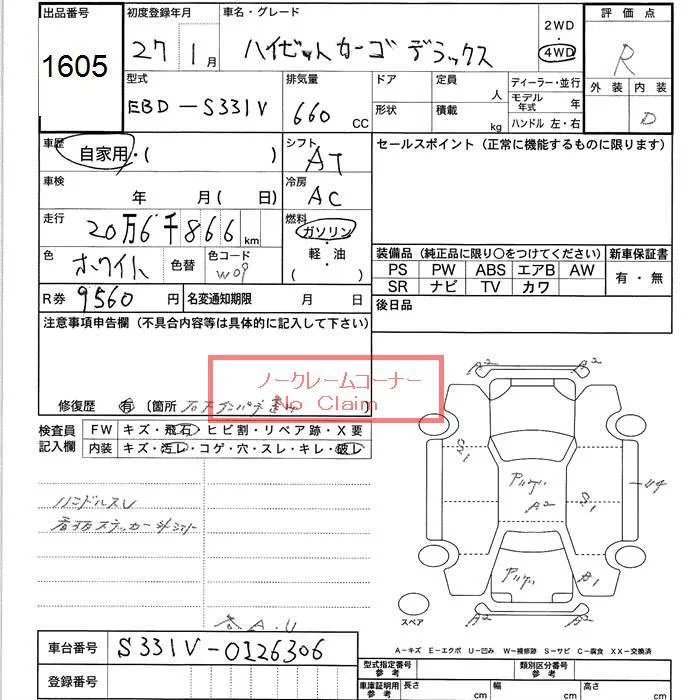 出品番号
1605
初度登録年月
27 1月
車名・グレード
ハイゼットカーゴ デラックス
2WD
・
4WD
評価点
R
外装 内装
D
型式
EBD-S331V
排気量
660 CC
ドア 定員 人
形状 積載 kg
ディーラー・並行
モデル年式 年
ハンドル 左・右
車歴
自家用・( )
シフト
AT
セールスポイント (正常に機能するものに限ります)
車検
年 月( 日)
冷房
AC
走行
20万6千866km
燃料
ガソリン
・
軽・油
( )
色
ホワイト
色替
色コード
W09
装備品 (純正品に限り○をつけてください) 新車保証書
PS PW ABS エアB AW
有・無
SR ナビ TV カワ
R券 9560円
名変通知期限 月 日
後日品
注意事項申告欄 (不具合内容等は具体的に記入して下さい)
ノークレームコーナー
No Claim
修復歴 有 (箇所
検査員記入欄
FW キズ・飛石・ヒビ割・リペア跡・X要
内装 キズ・汚レ・コゲ・穴・スレ・キレ・破レ
ハンドルスレ
A2 A2
S1
A2
S1
B1
A2 A2
スペア
A-キズ E-エクボ U-凹み W-補修跡 S-サビ C-腐食 XX-交換済
A.U
車台番号 S331V-0126306
登録番号
型式指定番号 参考
類別区分番号 参考
車庫証明用 参考 長さ cm 幅 cm 高さ cm